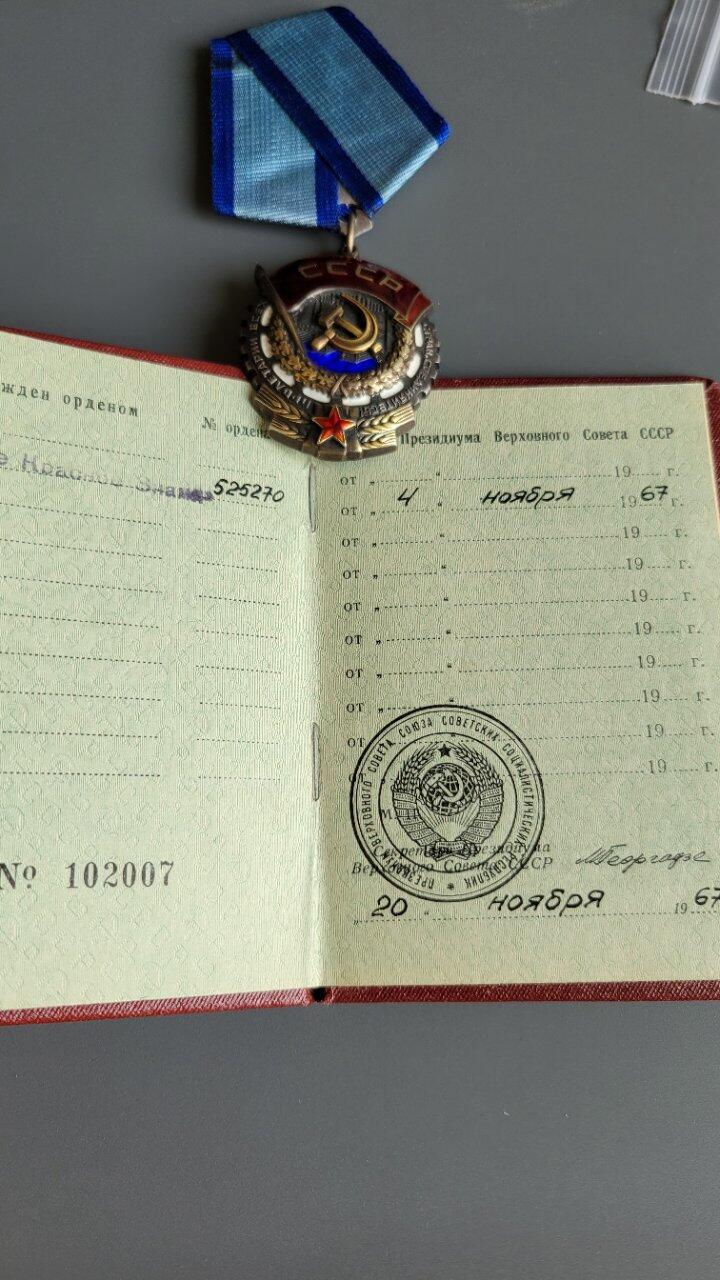 СССР
ждён орденом
№ ордена
Президиума Верховного Совета СССР
от „ “ 19 г.
е Красное Знамя 525270
от „ 4 “ ноября 1967 г.
от „ “ 19 г.
от „ “ 19 г.
от „ “ 19 г.
от „ “ 19 г.
от „ “ 19 г.
от „ “ 19 г.
от „ “ 19 г.
от „ “ 19 г.
ПРЕЗИДИУМ ВЕРХОВНОГО СОВЕТА СОЮЗА СОВЕТСКИХ СОЦИАЛИСТИЧЕСКИХ РЕСПУБЛИК
М.П.
Секретарь Президиума
Верховного Совета СССР МГеоргадзе
№ 102007
„ 20 “ ноября 1967